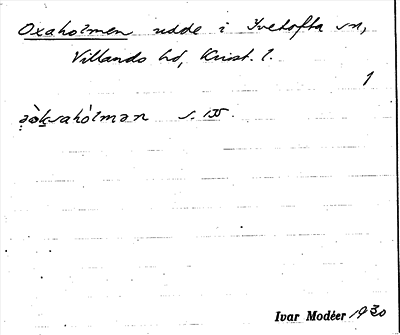 Oxaholmen udde i Ivetofta sn,
Villands hd, Krist. l.
1
s. 155.
Ivar Modéer 1930